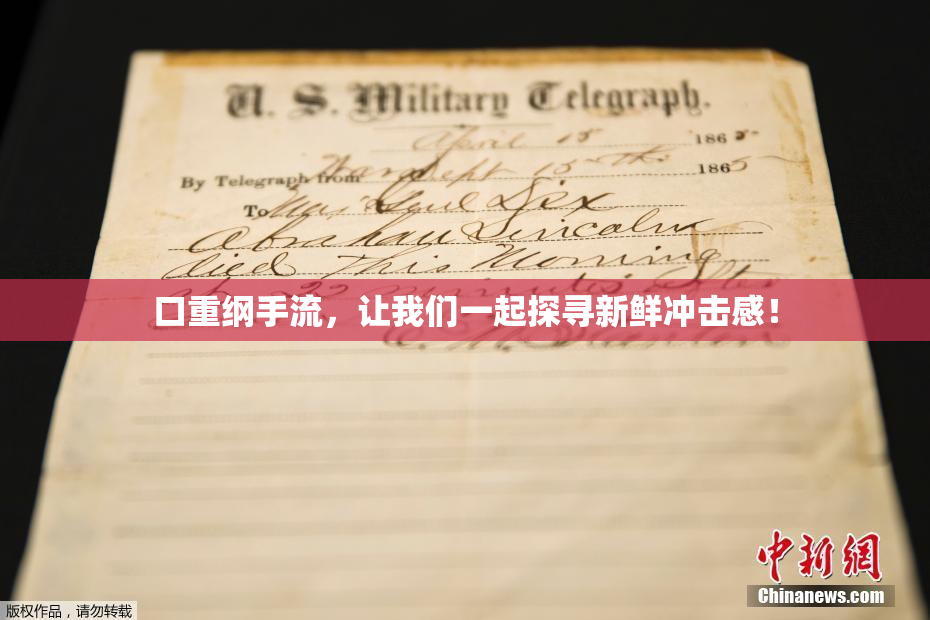 U. S. Military Telegraph.
April 15 1865
By Telegraph from War Dept 15th 1865
To Maj Genl Dix
Abraham Lincoln
died This Morning
at 22 minutes after
口重纲手流，让我们一起探寻新鲜冲击感！
E. M. Stanton
中新网
Chinanews.com
版权作品，请勿转载